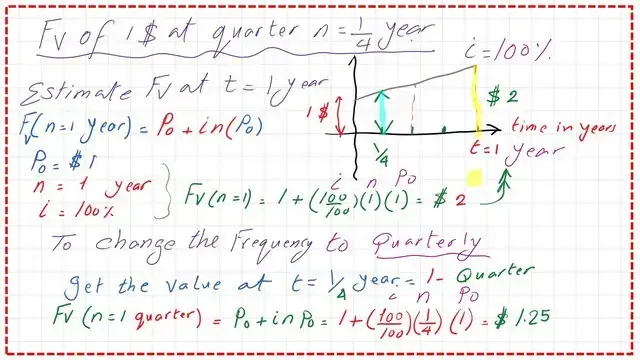 Fv of 1$ at quarter n = 1/4 year
i = 100%
Estimate Fv at t = 1 year
Fv(n=1 year) = Po + in(Po)
1$
$2
1/4
time in years
t=1 year
Po = $1
n = 1 year
i = 100%
i n Po
Fv(n=1) = 1 + (100/100)(1)(1) = $2
To change the Frequency to Quarterly
get the value at t = 1/4 year = 1- Quarter
i n Po
Fv(n=1 quarter) = Po + in Po = 1 + (100/100)(1/4)(1) = $1.25